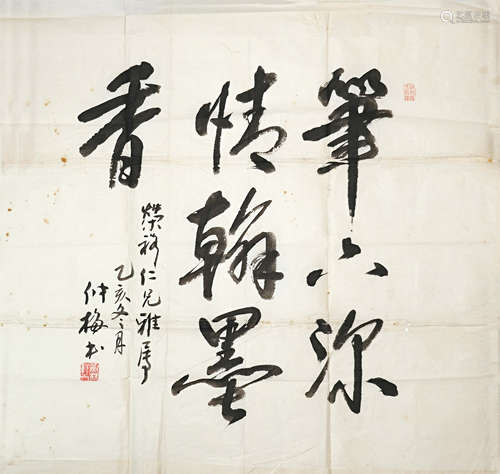 筆下深
情翰墨
香
榮祥仁兄雅属
乙亥冬月
仲梅书